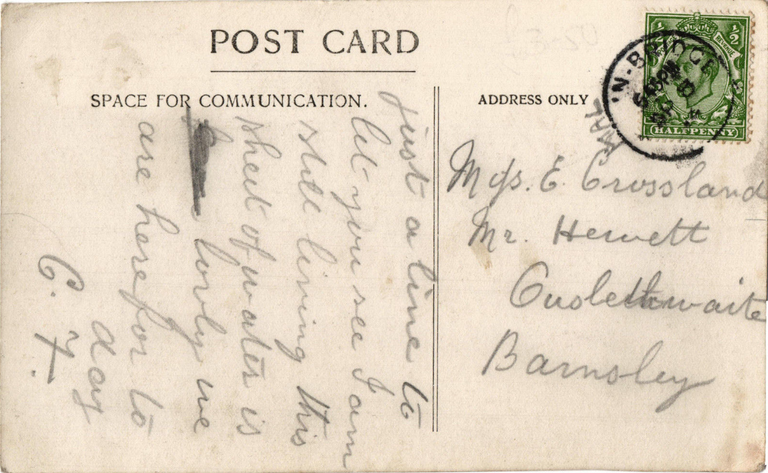 POST CARD
SPACE FOR COMMUNICATION.
just a line to
let you see I am
still living this
sheet of water is
lovly we
are here for to
day
C. Y.
ADDRESS ONLY
Miss. E. Crossland
Mr. Hewett
Ouslethwaite
Barnsley
N-BRIDGE
HALFPENNY